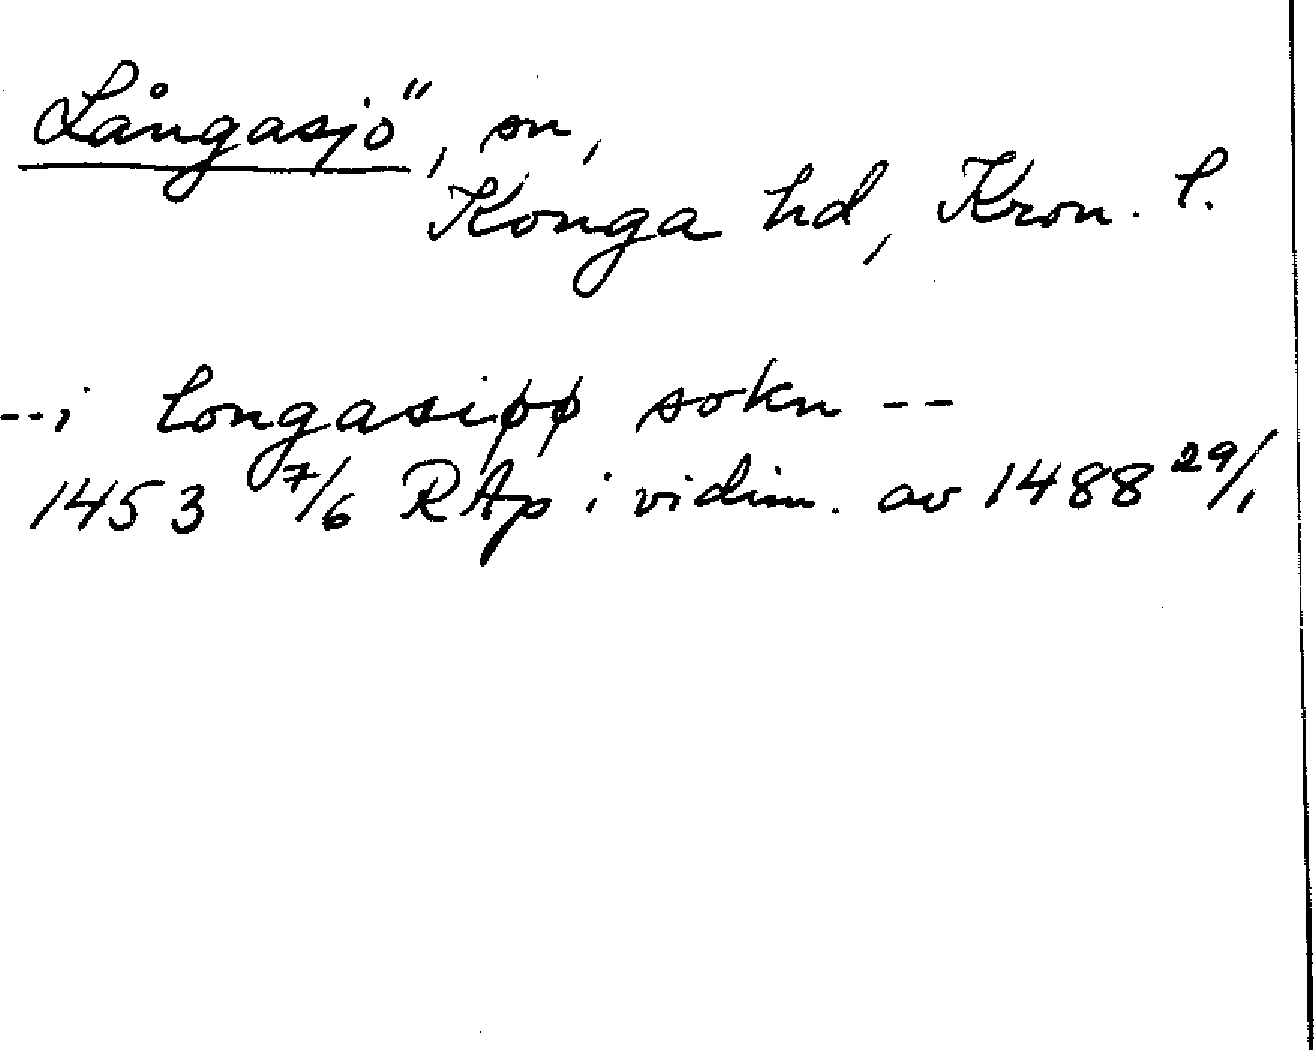 Långasjö, sn,
Konga hd, Kron. l.
--i longasiøø sokn --
1453 7/6 RAp i vidim. av 1488 29/1